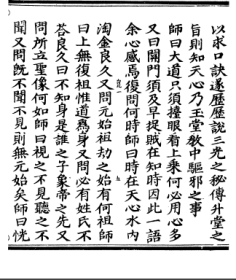 以求口訣遂歷歷說三光之秘傳升堂之
旨則知天心乃玉堂敎中驅邪之事
師曰大道只須擡眼看上乘何必用心多
又曰關門須及早捉賊在知時因此一語
余心感焉復問何時師曰時在天心水內
淘金良久又問元始祖劫之始有何祖師
曰上無復祖惟道爲身又問必有姓氏不
荅良久曰不知身是誰之子象帝之先又
問所立聖像何如師曰視之不見聽之不
聞又問旣不聞不見則無元始矣師曰恍